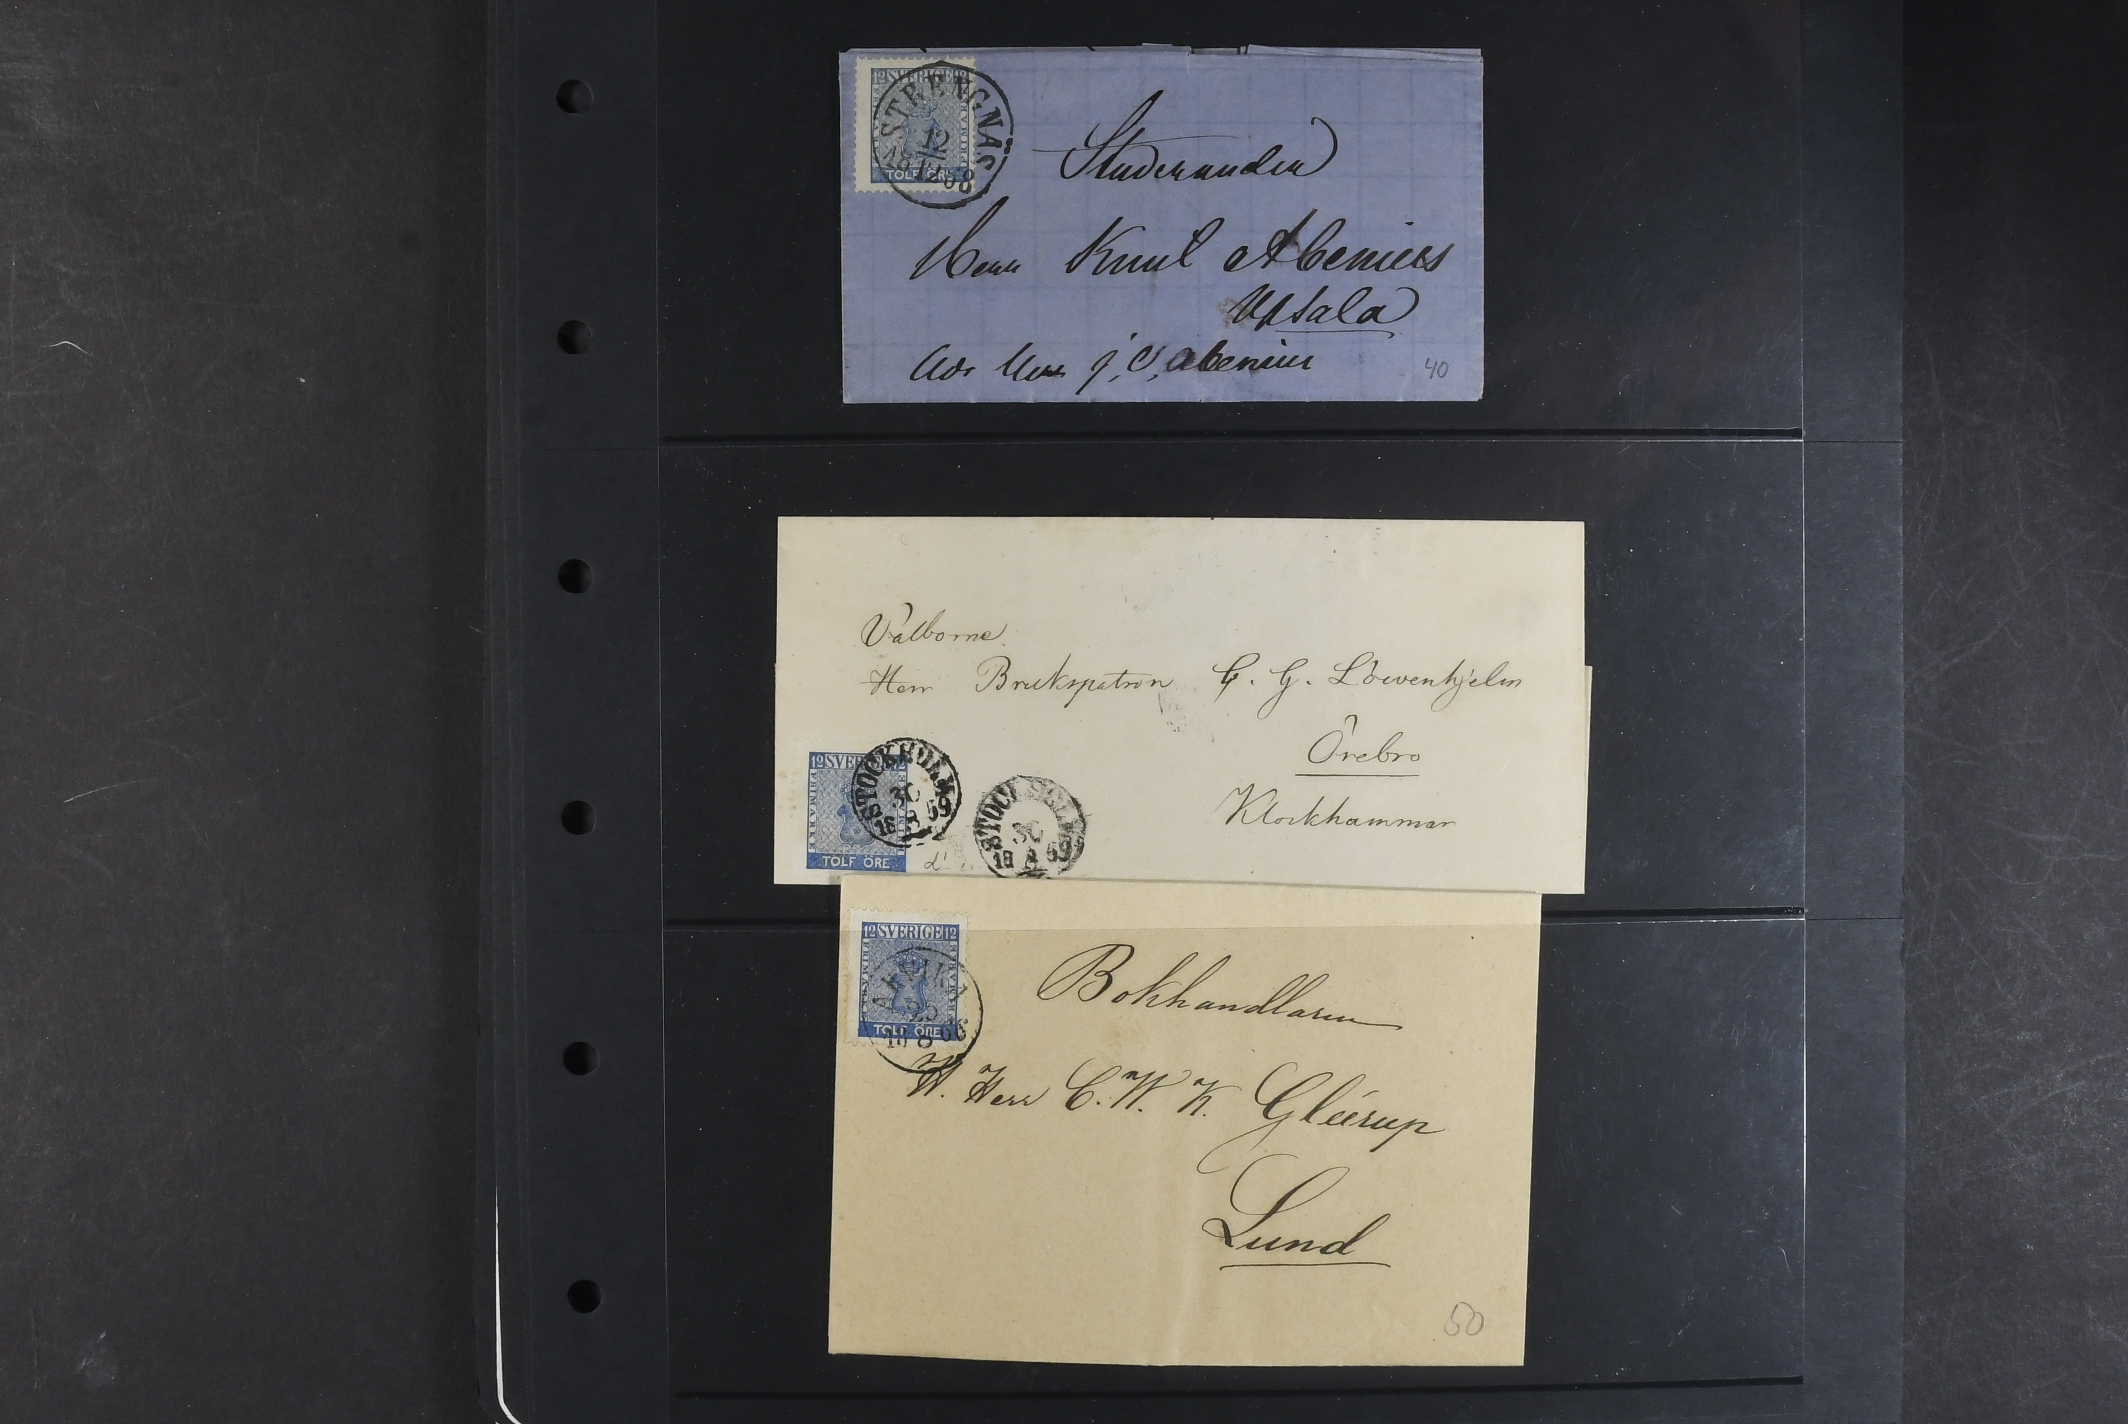 12 SVERIGE 12
FRIMARKE
TOLF ÖRE
STRENGNÄS
12
12
18 68
Studeranden
Herr Knut Abenius
Upsala
Adr Herr J, C, Abenius
40
Välborne
Herr Brukspatron C. G. Löwenhjelm
Örebro
Klockhammar
12 SVERIGE 12
FRIMARKE
TOLF ÖRE
STOCKHOLM
30
18 8 59
STOCKHOLM
30
18 8 59
12 SVERIGE 12
FRIMARKE
TOLF ÖRE
18 8 66
Bokhandlaren
H. Herr C. W. K. Gleerup
Lund
50